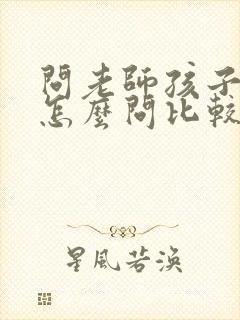 問老師孩子
怎麼問比較
星風若渙